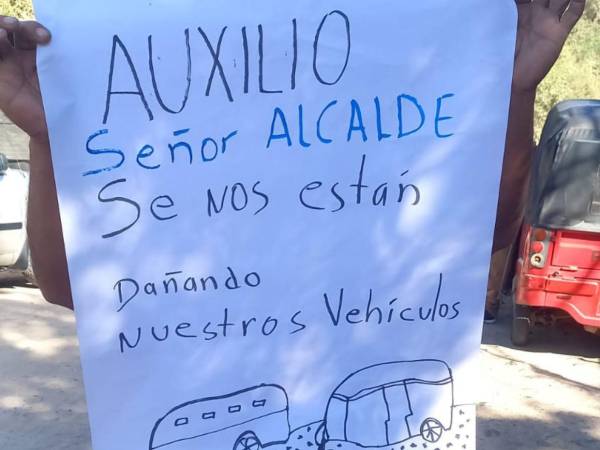 AUXILIO
Señor ALCALDE
Se NOS están
Dañando
NUESTROS Vehículos